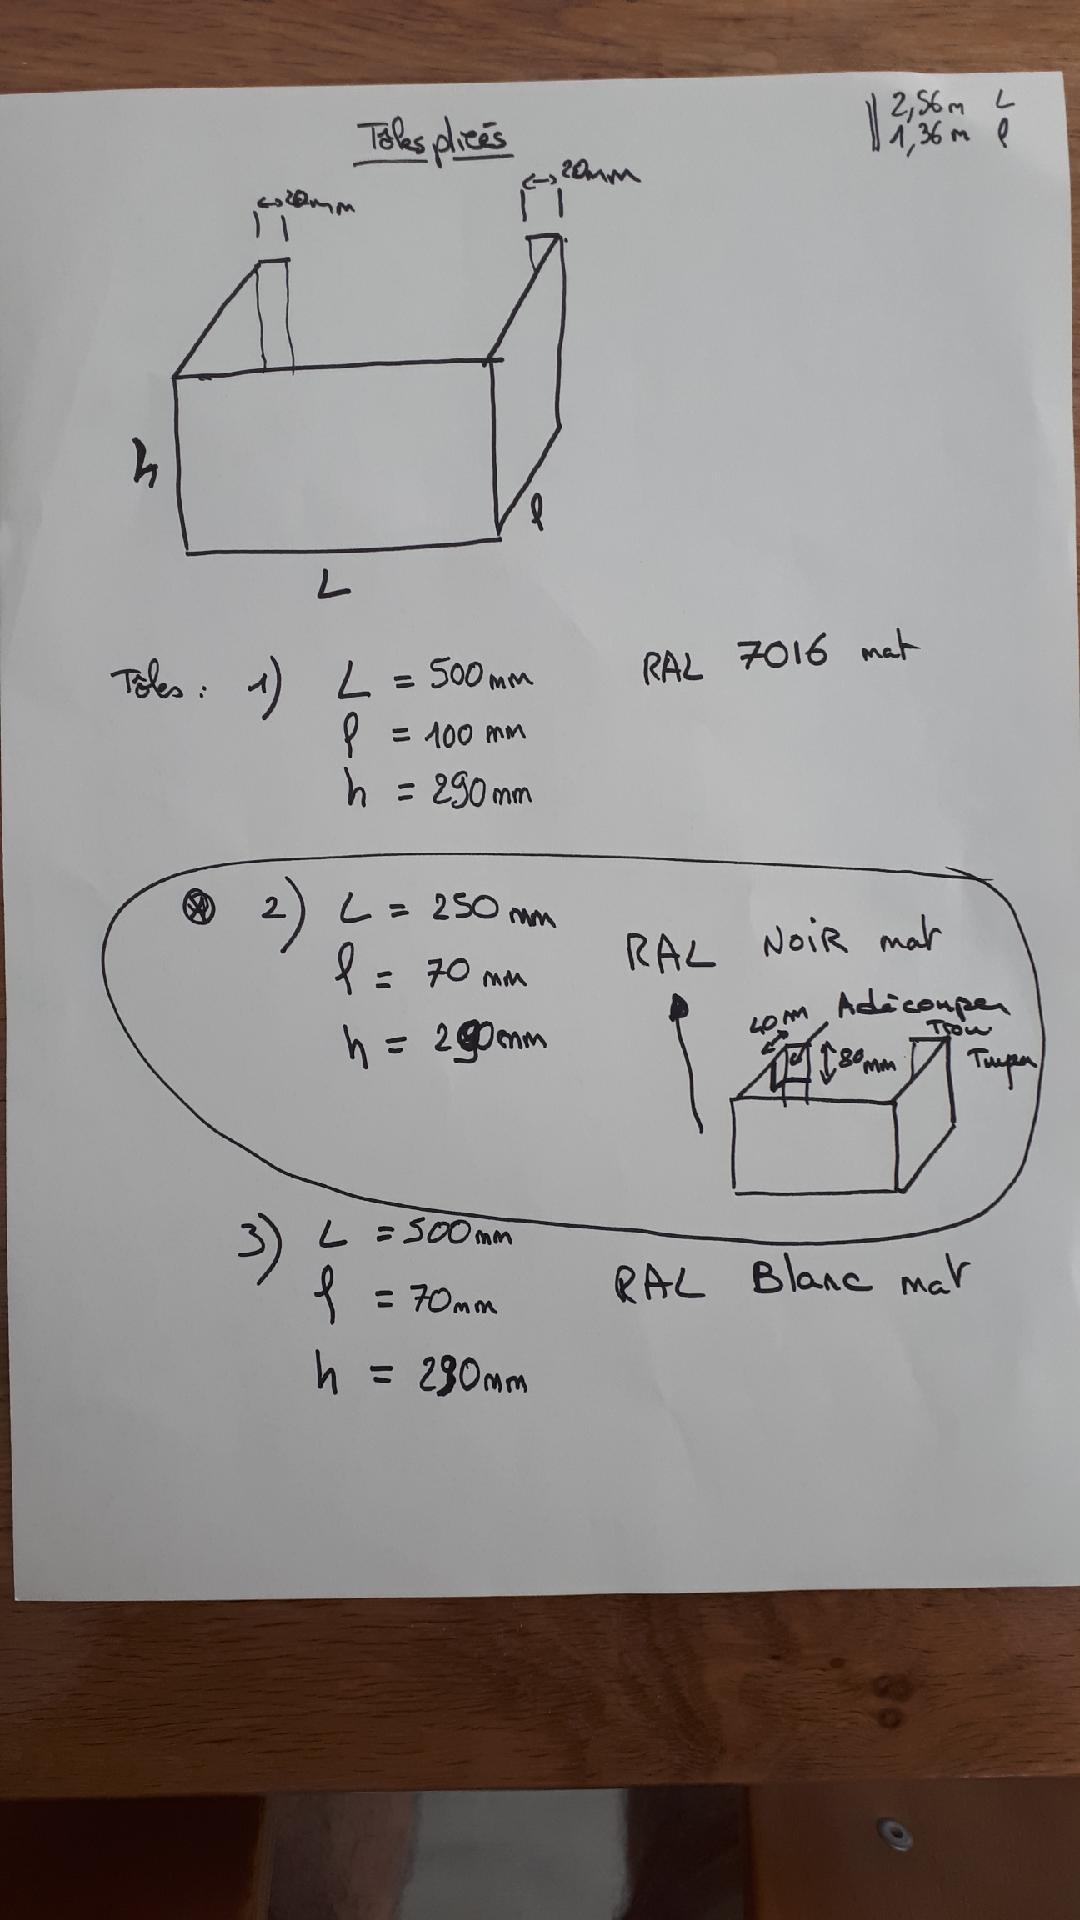 Tôles pliées
2,56m L
1,36m l
20mm
20mm
h
l
L
Tôles : 1) L = 500mm RAL 7016 mat
l = 100 mm
h = 290mm
2) L = 250 mm RAL NOIR mat
l = 70 mm
h = 290mm
A découper
80mm
Trou
3) L = 500mm RAL Blanc mat
l = 70mm
h = 290mm